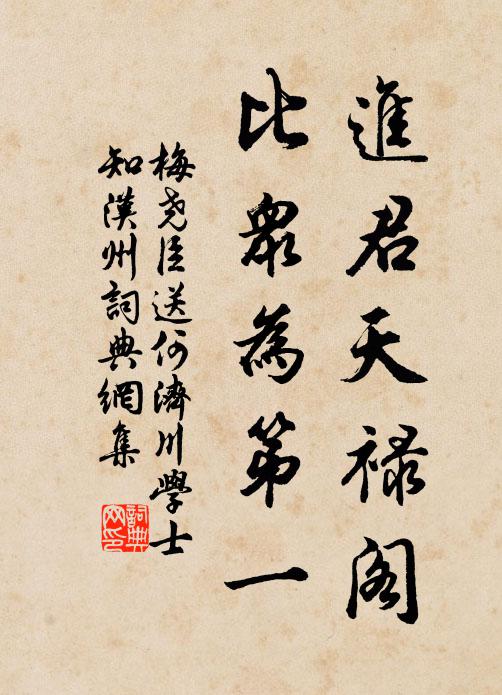 進君天禄阁
比眾為第一
梅尧臣送何濟川學士
知漢州詞典網集
詞典
网印